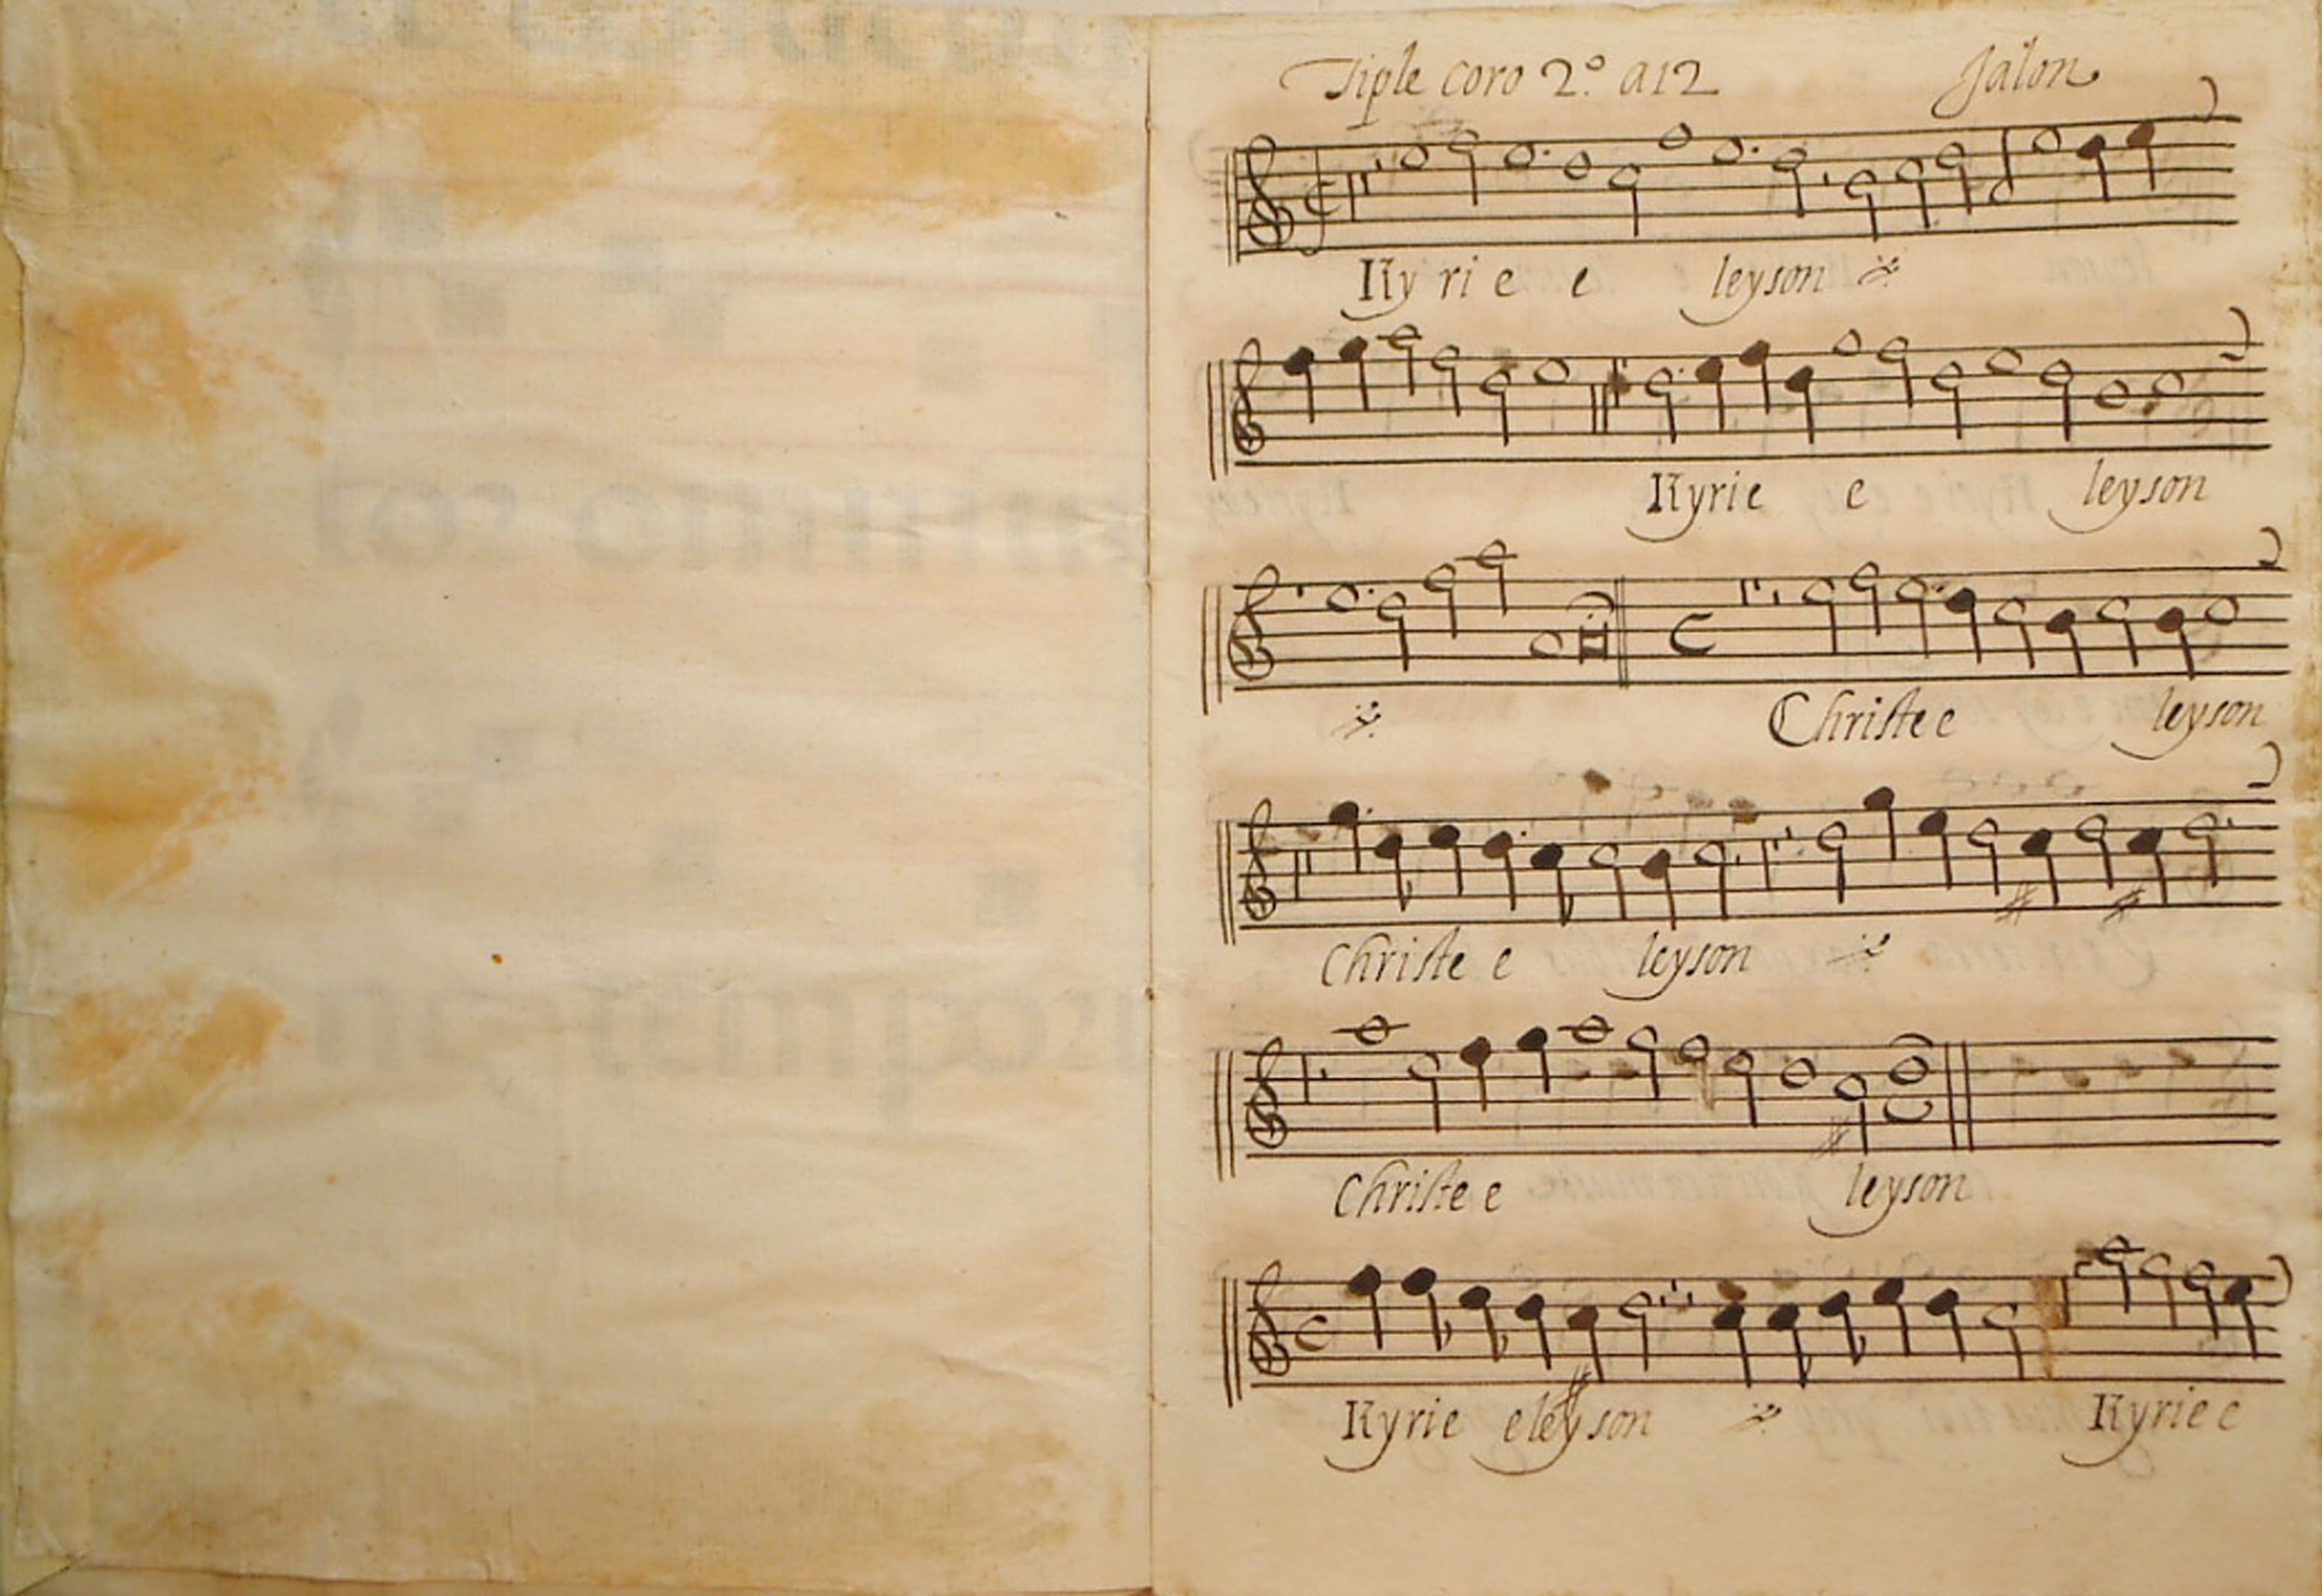 Tiple coro 2.º a12 Jalon
Ky ri e e leyson
Kyrie e leyson
Christe e leyson
Christe e leyson
Christe e leyson
Kyrie eleyson Kyrie e